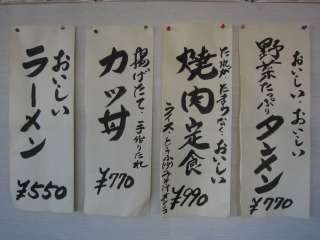 おいしい・おいしい
野菜たっぷり
タンメン
¥770
おいしい
焼肉定食
ライス
¥990
揚げたて・手作りたれ
カツ丼
¥770
おいしい
ラーメン
¥550